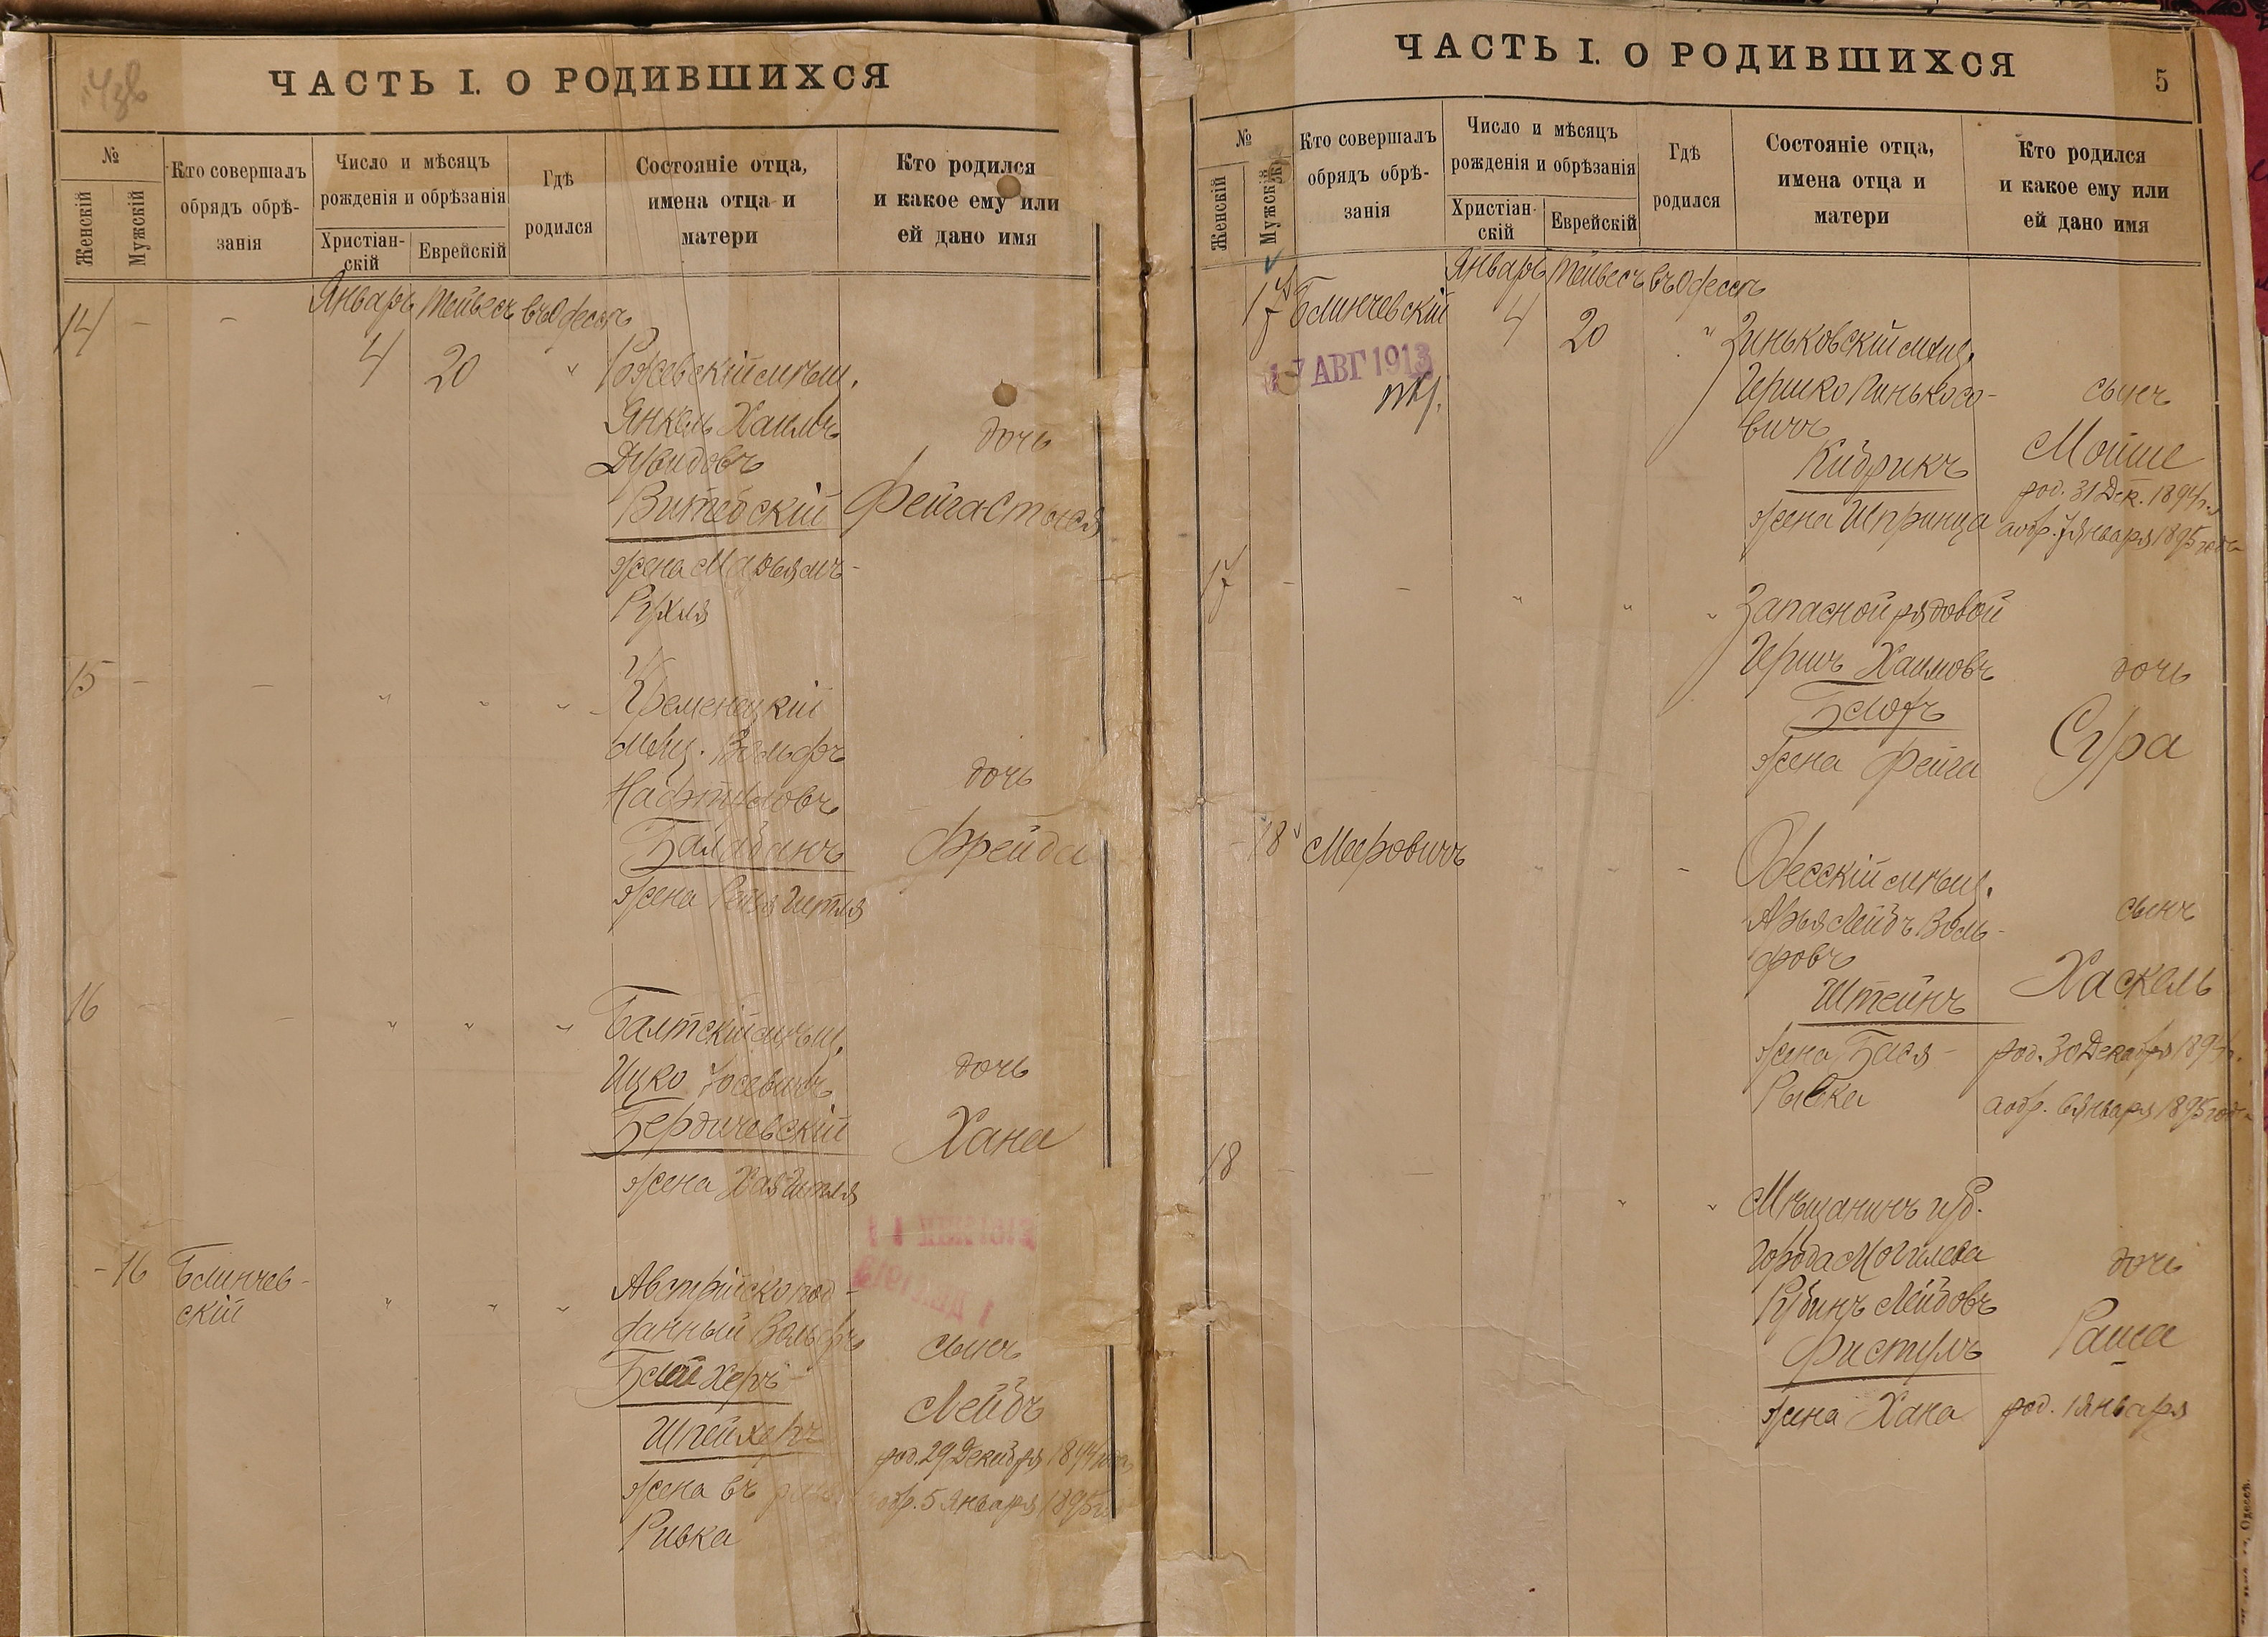 ЧАСТЬ I. О РОДИВШИХСЯ
№
Женскій
Мужскій
Кто совершалъ
обрядъ обрѣ-
занія
Число и мѣсяцъ
рожденія и обрѣзанія
Христіан-
скій
Еврейскій
Гдѣ
родился
Состояніе отца,
имена отца и
матери
Кто родился
и какое ему или
ей дано имя
Январь Тейвесъ въ Одессѣ
14 - -
4 20 " Ржевскій мѣщ.
Янкель Хаимъ
Дувидовъ
дочь
Витебскій Фейга Стыся
жена Марьямъ-
Рухля
15 - - " " " Кременецкій
мѣщ. Вольфъ
Нафтуловъ
дочь
Балабанъ Фрейда
жена Рейзя Ителя
16 - - " " " Балтскій мѣщ.
Ицко Іосевичъ
дочь
Бердичевскій
Хана
жена Хая Ителя
- 16 Блинчев-
скій
" " " Австрійскопод-
данный Вольфъ
сынъ
Блейхеръ
Лейбъ
Шпейхеръ
род. 29 Декабря 1894 года
жена въ
обр. 5 Января 1895 г.
Ривка
ЧАСТЬ I. О РОДИВШИХСЯ
5
№
Женскій
Мужскій
Кто совершалъ
обрядъ обрѣ-
занія
Число и мѣсяцъ
рожденія и обрѣзанія
Христіан-
скій
Еврейскій
Гдѣ
родился
Состояніе отца,
имена отца и
матери
Кто родился
и какое ему или
ей дано имя
Январь Тейвесъ въ Одессѣ
17 Блинчевскій 4 20 " Зиньковскій мѣщ.
17 АВГ 1913
Гершко Пинькосо-
вичъ
сынъ
Кибрикъ
Мойше
род. 31 Дек. 1894 г.
жена Шпринца
а обр. 7 Января 1895 года
17 - - " " " Запасной рядовой
Гершъ Хаимовъ
дочь
Блофъ
Сура
жена Фейга
- 18 Меировичъ " " " Одесскій мѣщ.
Арья Лейбъ Воль-
фовъ
сынъ
Хаскель
Штейнъ
жена Бася-
род. 30 Декабря 1894 г.
Рывка
а обр. 6 Января 1895 года
18 - - " " Мѣщанинъ губ.
города Могилева
дочь
Рубинъ Лейбовъ
Фистулъ
Раша
жена Хана
род. 1 Января